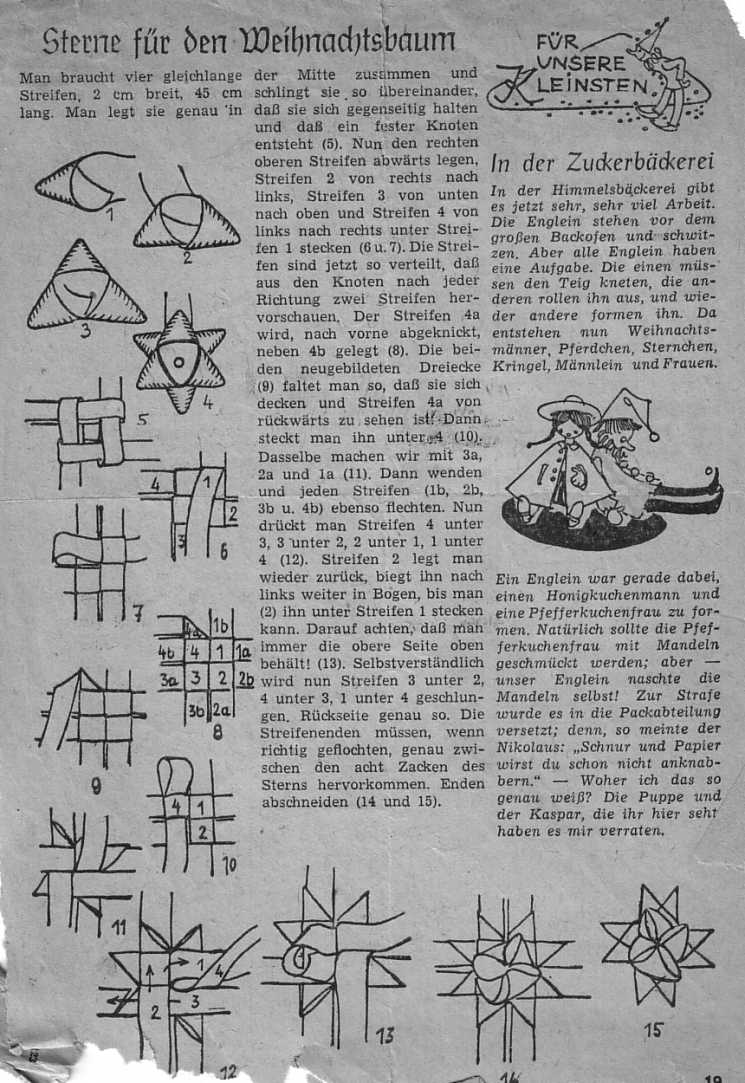 Sterne für den Weihnachtsbaum
Man braucht vier gleichlange
Streifen, 2 cm breit, 45 cm
lang. Man legt sie genau in
der Mitte zusammen und
schlingt sie so übereinander,
daß sie sich gegenseitig halten
und daß ein fester Knoten
entsteht (5). Nun den rechten
oberen Streifen abwärts legen,
Streifen 2 von rechts nach
links, Streifen 3 von unten
nach oben und Streifen 4 von
links nach rechts unter Strei-
fen 1 stecken (6 u. 7). Die Strei-
fen sind jetzt so verteilt, daß
aus den Knoten nach jeder
Richtung zwei Streifen her-
vorschauen. Der Streifen 4a
wird, nach vorne abgeknickt,
neben 4b gelegt (8). Die bei-
den neugebildeten Dreiecke
(9) faltet man so, daß sie sich
decken und Streifen 4a von
rückwärts zu sehen ist. Dann
steckt man ihn unter 4 (10).
Dasselbe machen wir mit 3a,
2a und 1a (11). Dann wenden
und jeden Streifen (1b, 2b,
3b u. 4b) ebenso flechten. Nun
drückt man Streifen 4 unter
3, 3 unter 2, 2 unter 1, 1 unter
4 (12). Streifen 2 legt man
wieder zurück, biegt ihn nach
links weiter in Bogen, bis man
(2) ihn unter Streifen 1 stecken
kann. Darauf achten, daß man
immer die obere Seite oben
behält! (13). Selbstverständlich
wird nun Streifen 3 unter 2,
4 unter 3, 1 unter 4 geschlun-
gen. Rückseite genau so. Die
Streifenenden müssen, wenn
richtig geflochten, genau zwi-
schen den acht Zacken des
Sterns hervorkommen. Enden
abschneiden (14 und 15).
1
2
3
4
5
4
1
2
3
6
7
4a 1b
4b 4 1 1a
3a 3 2 2b
3b 2a
8
9
4 1
2
10
11
1
4
2
3
12
13
14
15
FÜR
UNSERE
KLEINSTEN
In der Zuckerbäckerei
In der Himmelsbäckerei gibt
es jetzt sehr, sehr viel Arbeit.
Die Englein stehen vor dem
großen Backofen und schwit-
zen. Aber alle Englein haben
eine Aufgabe. Die einen müs-
sen den Teig kneten, die an-
deren rollen ihn aus, und wie-
der andere formen ihn. Da
entstehen nun Weihnachts-
männer, Pferdchen, Sternchen,
Kringel, Männlein und Frauen.
Ein Englein war gerade dabei,
einen Honigkuchenmann und
eine Pfefferkuchenfrau zu for-
men. Natürlich sollte die Pfef-
ferkuchenfrau mit Mandeln
geschmückt werden; aber —
unser Englein naschte die
Mandeln selbst! Zur Strafe
wurde es in die Packabteilung
versetzt; denn, so meinte der
Nikolaus: „Schnur und Papier
wirst du schon nicht anknab-
bern.“ — Woher ich das so
genau weiß? Die Puppe und
der Kaspar, die ihr hier seht
haben es mir verraten.
19